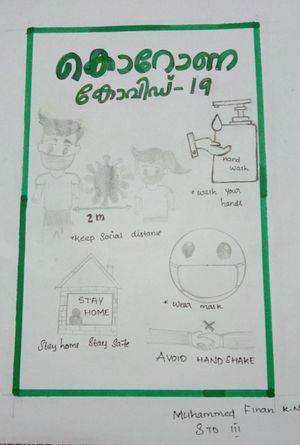 കൊറോണ
കോവിഡ് - 19
Hand
wash
* wash your
hands
2 m
*keep social distance
* wear mask
STAY
HOME
Stay home Stay Safe
AVOID HANDSHAKE
Muhammed Finan K.N
STD iii